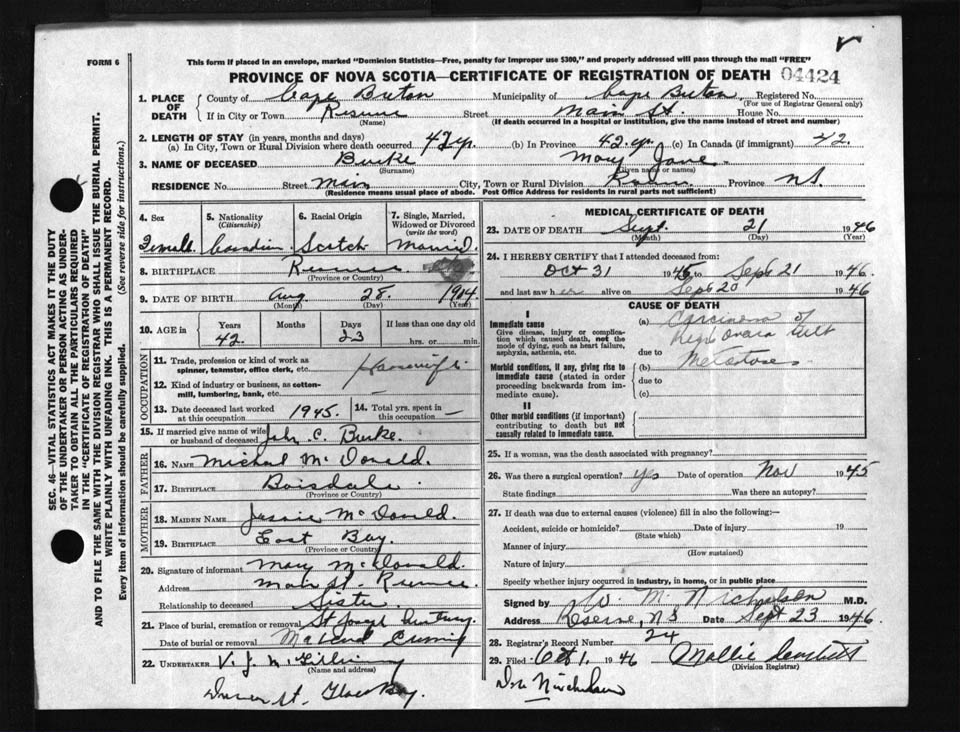 FORM 6
This form if placed in an envelope, marked "Dominion Statistics—Free, penalty for improper use $300," and properly addressed will pass through the mail "FREE"
PROVINCE OF NOVA SCOTIA—CERTIFICATE OF REGISTRATION OF DEATH 04424
SEC. 46—VITAL STATISTICS ACT MAKES IT THE DUTY
OF THE UNDERTAKER OR PERSON ACTING AS UNDER-
TAKER TO OBTAIN ALL THE PARTICULARS REQUIRED
IN THE "CERTIFICATE OF REGISTRATION OF DEATH"
AND TO FILE THE SAME WITH THE DIVISION REGISTRAR WHO SHALL ISSUE THE BURIAL PERMIT.
WRITE PLAINLY WITH UNFADING INK. THIS IS A PERMANENT RECORD.
Every item of information should be carefully supplied. (See reverse side for instructions.)
1. PLACE OF DEATH
County of Cape Breton Municipality of Cape Breton Registered No.
(For use of Registrar General only)
If in City or Town Reserve Street Main St. House No.
(Name) (If death occurred in a hospital or institution, give the name instead of street and number)
2. LENGTH OF STAY (in years, months and days)
(a) In City, Town or Rural Division where death occurred 42 yr. (b) In Province 42 yr. (c) In Canada (if immigrant) 42.
3. NAME OF DECEASED Burke Mary Jane
(Surname) (Given name or names)
RESIDENCE No. Street Main City, Town or Rural Division Province NS.
(Residence means usual place of abode. Post Office Address for residents in rural parts not sufficient)
4. Sex 5. Nationality (Citizenship) 6. Racial Origin 7. Single, Married, Widowed or Divorced (write the word)
Female Canadian Scotch Married.
8. BIRTHPLACE Reserve
(Province or Country)
9. DATE OF BIRTH Aug 28. 1904.
(Month) (Day) (Year)
10. AGE in Years Months Days If less than one day old
42. 23 hrs. or min.
OCCUPATION
11. Trade, profession or kind of work as spinner, teamster, office clerk, etc. Housewife
12. Kind of industry or business, as cotton-mill, lumbering, bank, etc. —
13. Date deceased last worked at this occupation 1945. 14. Total yrs. spent in this occupation —
15. If married give name of wife or husband of deceased John C. Burke.
FATHER
16. NAME Michael McDonald.
17. BIRTHPLACE Boisdale
(Province or Country)
MOTHER
18. MAIDEN NAME Jessie McDonald.
19. BIRTHPLACE East Bay.
(Province or Country)
20. Signature of informant Mary McDonald.
Address Main St. Reserve.
Relationship to deceased Sister
21. Place of burial, cremation or removal St Joseph
Date of burial or removal
22. UNDERTAKER V. J.
(Name and address)
St. Glace Bay.
MEDICAL CERTIFICATE OF DEATH
23. DATE OF DEATH Sept. 21 1946
(Month) (Day) (Year)
24. I HEREBY CERTIFY that I attended deceased from:
Oct 31 1945 to Sept 21 1946.
and last saw her alive on Sept 20 1946
CAUSE OF DEATH
I
Immediate cause
Give disease, injury or complication which caused death, not the mode of dying, such as heart failure, asphyxia, asthenia, etc.
(a) Carcinoma of
Right
due to
Morbid conditions, if any, giving rise to immediate cause (stated in order proceeding backwards from immediate cause).
(b)
due to
(c)
II
Other morbid conditions (if important) contributing to death but not causally related to immediate cause.
25. If a woman, was the death associated with pregnancy?
26. Was there a surgical operation? Yes Date of operation Nov 1945
State findings Was there an autopsy?
27. If death was due to external causes (violence) fill in also the following:—
Accident, suicide or homicide? Date of injury 19
(State which)
Manner of injury
(How sustained)
Nature of injury
Specify whether injury occurred in industry, in home, or in public place
Signed by W. M. Nicholson M.D.
Address Reserve, NS Date Sept 23 1946
28. Registrar's Record Number 24
29. Filed Oct 1 1946 Mollie
(Division Registrar)
Nicholson